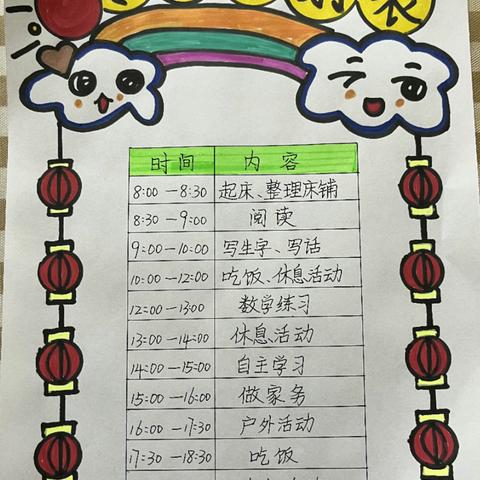 表
时间 内容
8:00－8:30 起床、整理床铺
8:30－9:00 阅读
9:00－10:00 写生字、写话
10:00－12:00 吃饭、休息活动
12:00－13:00 数学练习
13:00－14:00 休息活动
14:00－15:00 自主学习
15:00－16:00 做家务
16:00－17:30 户外活动
17:30－18:30 吃饭